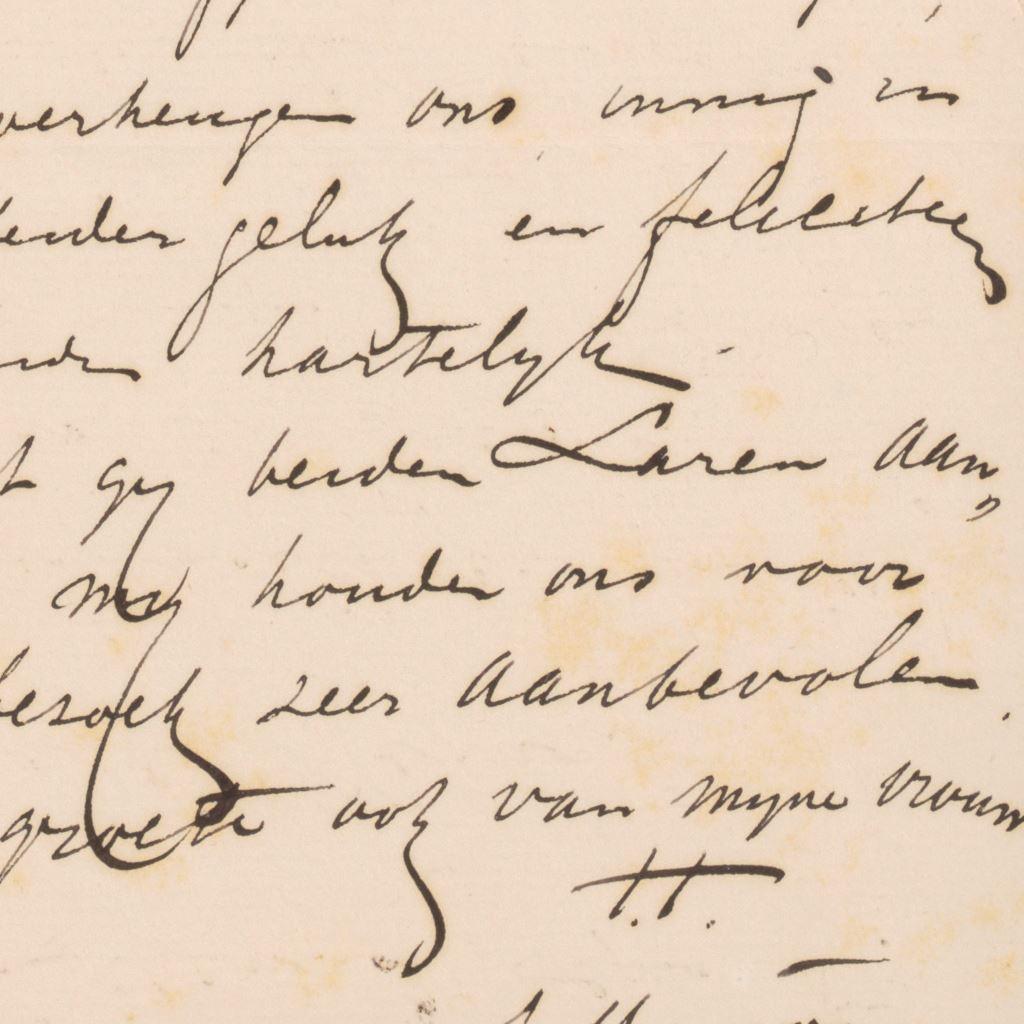 verheugen ons innig in
beider geluk en feliciteer
hartelyk.
gy beiden Laren aan,
my houden ons voor
besoek zeer aanbevolen.
groete ook van myne vrouw
T.T.